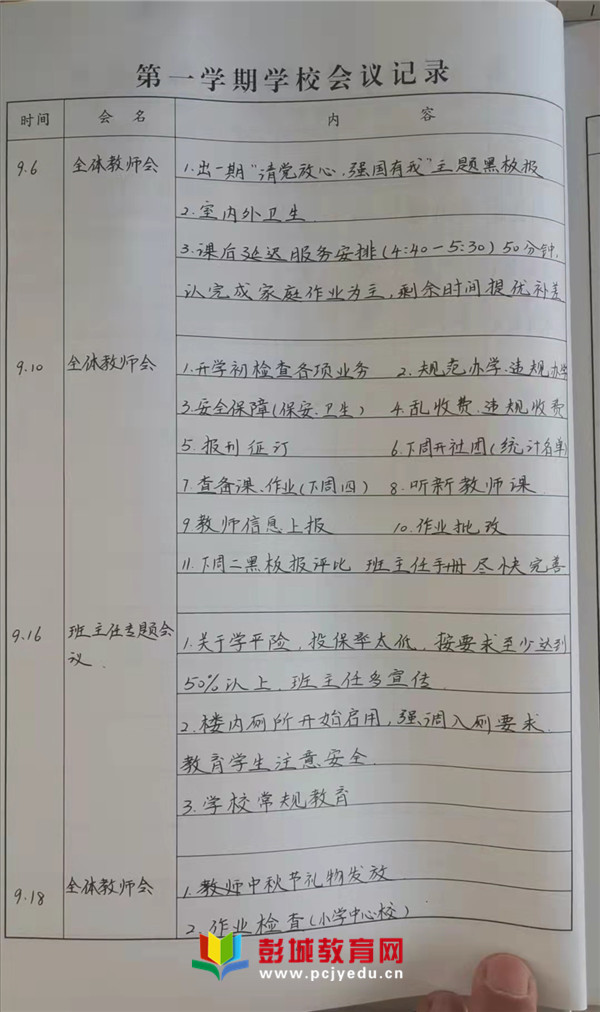 第一学期学校会议记录
时间 会 名 内 容
9.6 全体教师会 1.出一期“请党放心,强国有我”主题黑板报
2.室内外卫生
3.课后延迟服务安排(4:40-5:30)50分钟,
认完成家庭作业为主,剩余时间提优补差
9.10 全体教师会 1.开学初检查各项业务 2.规范办学.违规办学
3.安全保障(保安.卫生) 4.乱收费.违规收费
5.报刊征订 6.下周开社团(统计名单)
7.查备课、作业(下周四) 8.听新教师课
9.教师信息上报 10.作业批改
11.下周二黑板报评比 班主任手册尽快完善
9.16 班主任专题会 1.关于学平险,投保率太低,按要求至少达到
议. 50%以上,班主任多宣传.
2.楼内厕所开始启用,强调入厕要求.
教育学生注意安全.
3.学校常规教育
9.18 全体教师会 1.教师中秋节礼物发放
2.作业检查(小学中心校)
彭城教育网
www.pcjyedu.cn
1